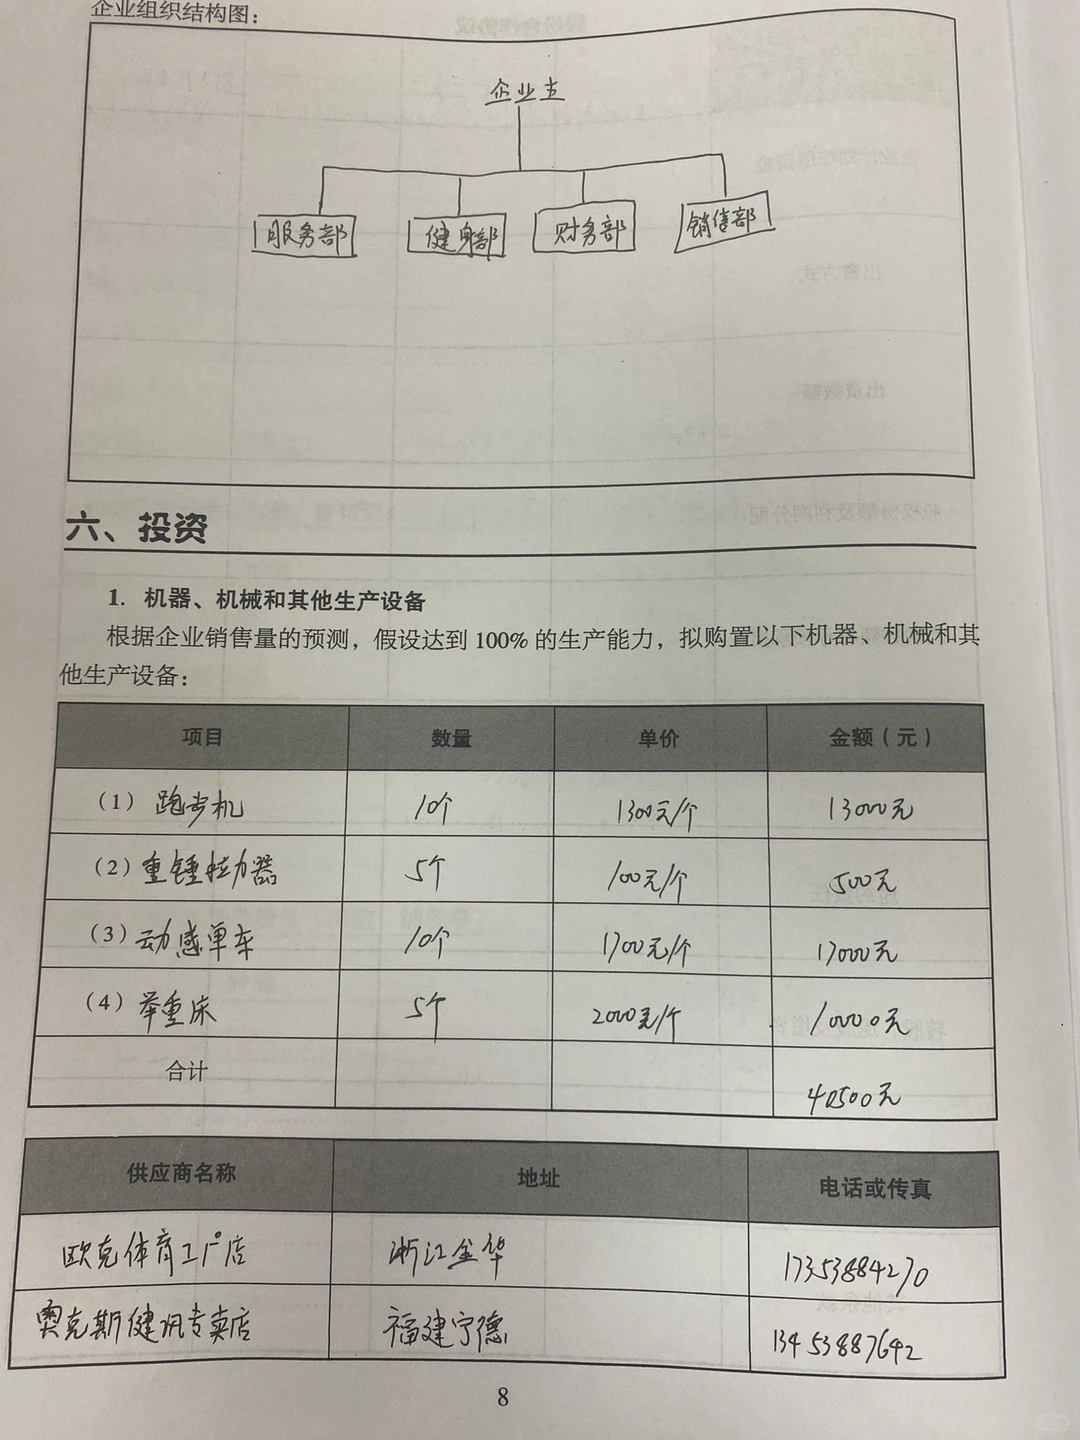 企业组织结构图：
企业主
服务部 健身部 财务部 销售部
六、投资
1. 机器、机械和其他生产设备
根据企业销售量的预测，假设达到 100% 的生产能力，拟购置以下机器、机械和其
他生产设备：
项目 数量 单价 金额（元）
（1）跑步机 10个 1300元/个 13000元
（2）重锤拉力器 5个 100元/个 500元
（3）动感单车 10个 1700元/个 17000元
（4）举重床 5个 2000元/个 10000元
合计 40500元
供应商名称 地址 电话或传真
欧克体育工厂店 浙江金华 17353884270
奥克斯健讯专卖店 福建宁德 13453887642
8